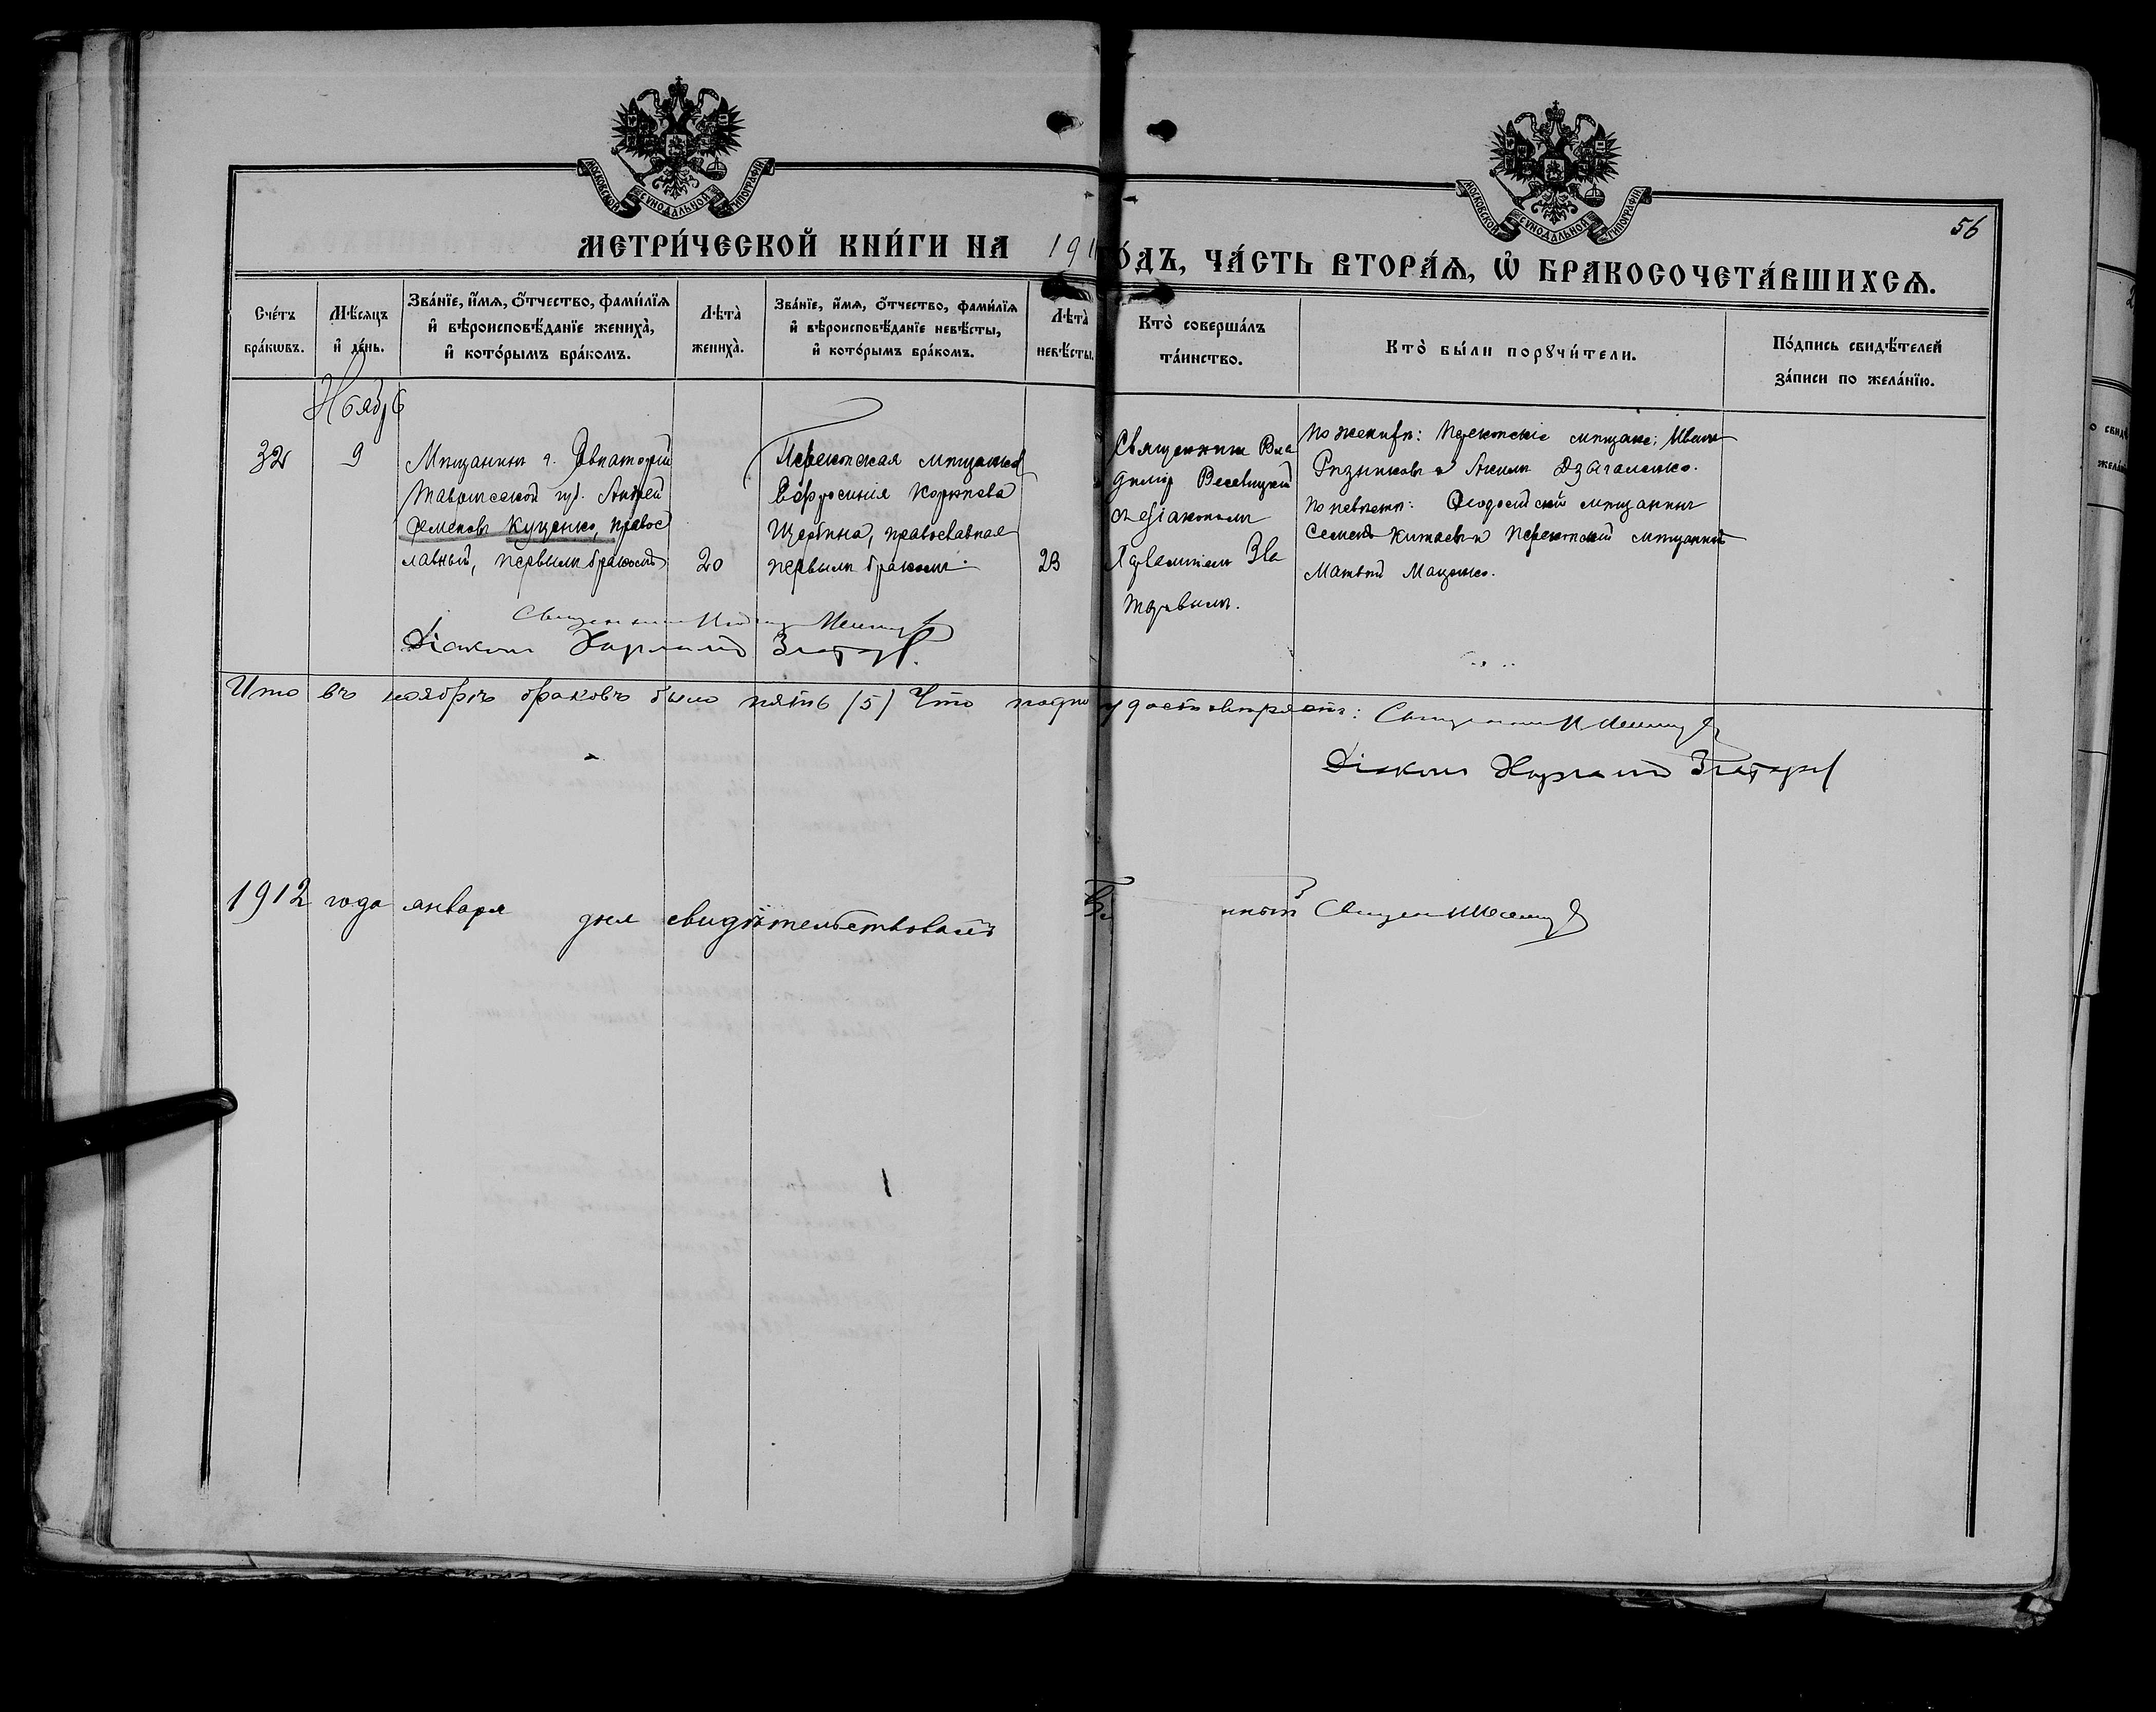 МОСКОВСКОЙ СѴНОДАЛЬНОЙ ТИПОГРАФІИ
МОСКОВСКОЙ СѴНОДАЛЬНОЙ ТИПОГРАФІИ
56
МЕТРИ́ЧЕСКОЙ КНИ́ГИ НА 191
ОДЪ, ЧА́СТЬ ВТОРА́Ѧ, Ѡ҆ БРАКОСОЧЕТА́ВШИХСѦ.
Сче́тъ
бра́кѡвъ.
Мѣ́сяцъ
и҆ де́нь.
Зва́нїе, и҆́мѧ, ѻ҆́тчество, фами́лїѧ
и҆ вѣроисповѣ́данїе жениха̀,
и҆ кото́рымъ бра́комъ.
Лѣта̀
жениха̀.
Зва́нїе, и҆́мѧ, ѻ҆́тчество, фами́лїѧ
и҆ вѣроисповѣ́данїе невѣ́сты,
и҆ кото́рымъ бра́комъ.
Лѣта̀
невѣ́сты.
Кто̀ соверша́лъ
та́инство.
Кто̀ бы́ли порꙋчи́тели.
По́дпись свидѣ́телей
за́писи по жела́нїю.
Ноябрь
32
9
Мѣщанинъ г. Евпаторіи
Таврической губ. Андрей
Семеновъ Куценко, правос
лавный, первымъ бракомъ
20
Перекопская мѣщанка
Евфросинія Корнѣева
Щербина, православная
первымъ бракомъ.
23
Священникъ Вла
диміръ Веселицкій
съ діакономъ
Харлампіемъ Зла
таревымъ.
По женихѣ: Перекопскіе мѣщане: Иванъ
Рѣзниковъ и Акимъ Дзигаленко.
По невѣстѣ: Ѳеодосійскій мѣщанинъ
Семенъ Китаевъ и Перекопскій мѣщанинъ
Матвѣй Маценко.
Священникъ
Діаконъ Харлампій Златаревъ.
Итого въ ноябрѣ браковъ было пять (5) Что
удостовѣряютъ: Священникъ
Діаконъ Харлампій Златаревъ
1912 года января дня свидѣтельствовалъ
Священ